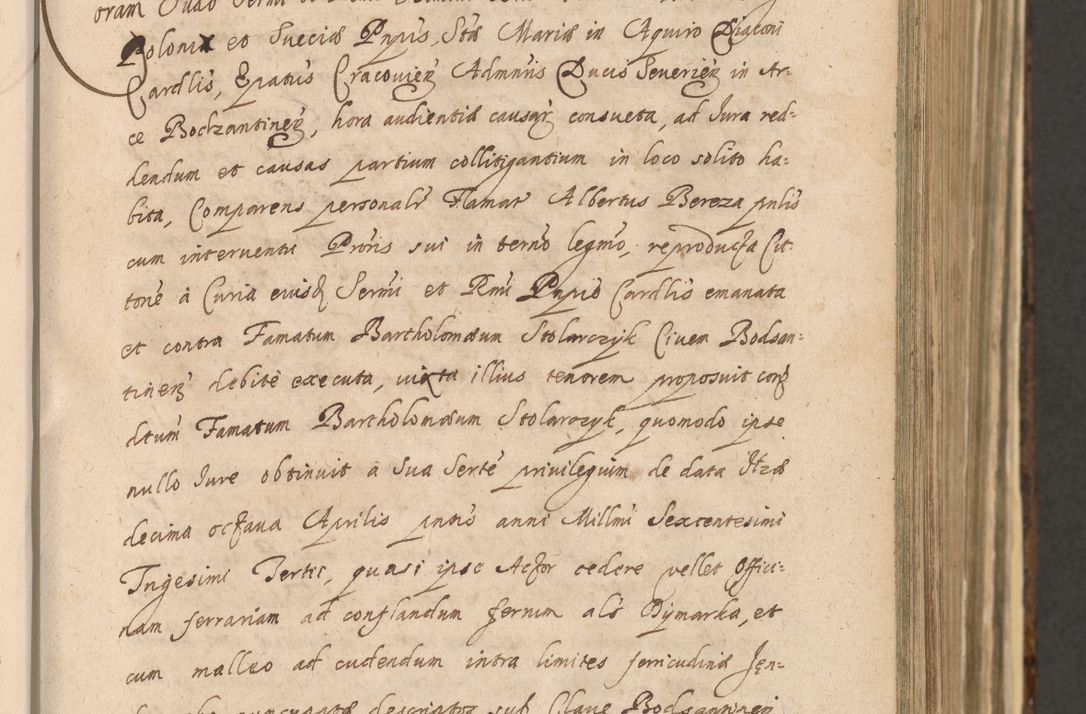 Poloniæ et Sueciæ Pnpis, Stæ Mariæ in Aquiro Diaconi
Cardlis, Epatus Cracovien Admnis Ducis Severien in Ar-
ce Bodzantinen, hora audientiæ causar consueta, ad Jura red=
dendum et causas partium collitigantium in loco solito ha=
bita, Comparens personalr Famat Albertus Bereza pnlis
cum interventu Proris sui in termo legmo, reproducta Cit-
tone à Curia eiusd Sermi et Rmi Pnpis Cardlis emanata
et contra Famatum Bartholomæum Stolarczyk Civem Bodsan=
tinen debitè executa, iuxta illius tenorem proposuit cong
dtum Famatum Bartholomæum Stolarczyk, quomodo ipse
nullo Jure obtinuit à Sua Serte privilegium de data Ilzæ
decima octava Aprilis pntis anni Millmi Sexcentesimi
Trigesimi Tertii, quasi ipse Actor cedere vellet Offici=
nam ferrariam ad conflandum ferrum als Dymarka, et
cum malleo ad cudendum intra limites ferricudinæ Jęn=
descriptor sub Clave Bodsantinen